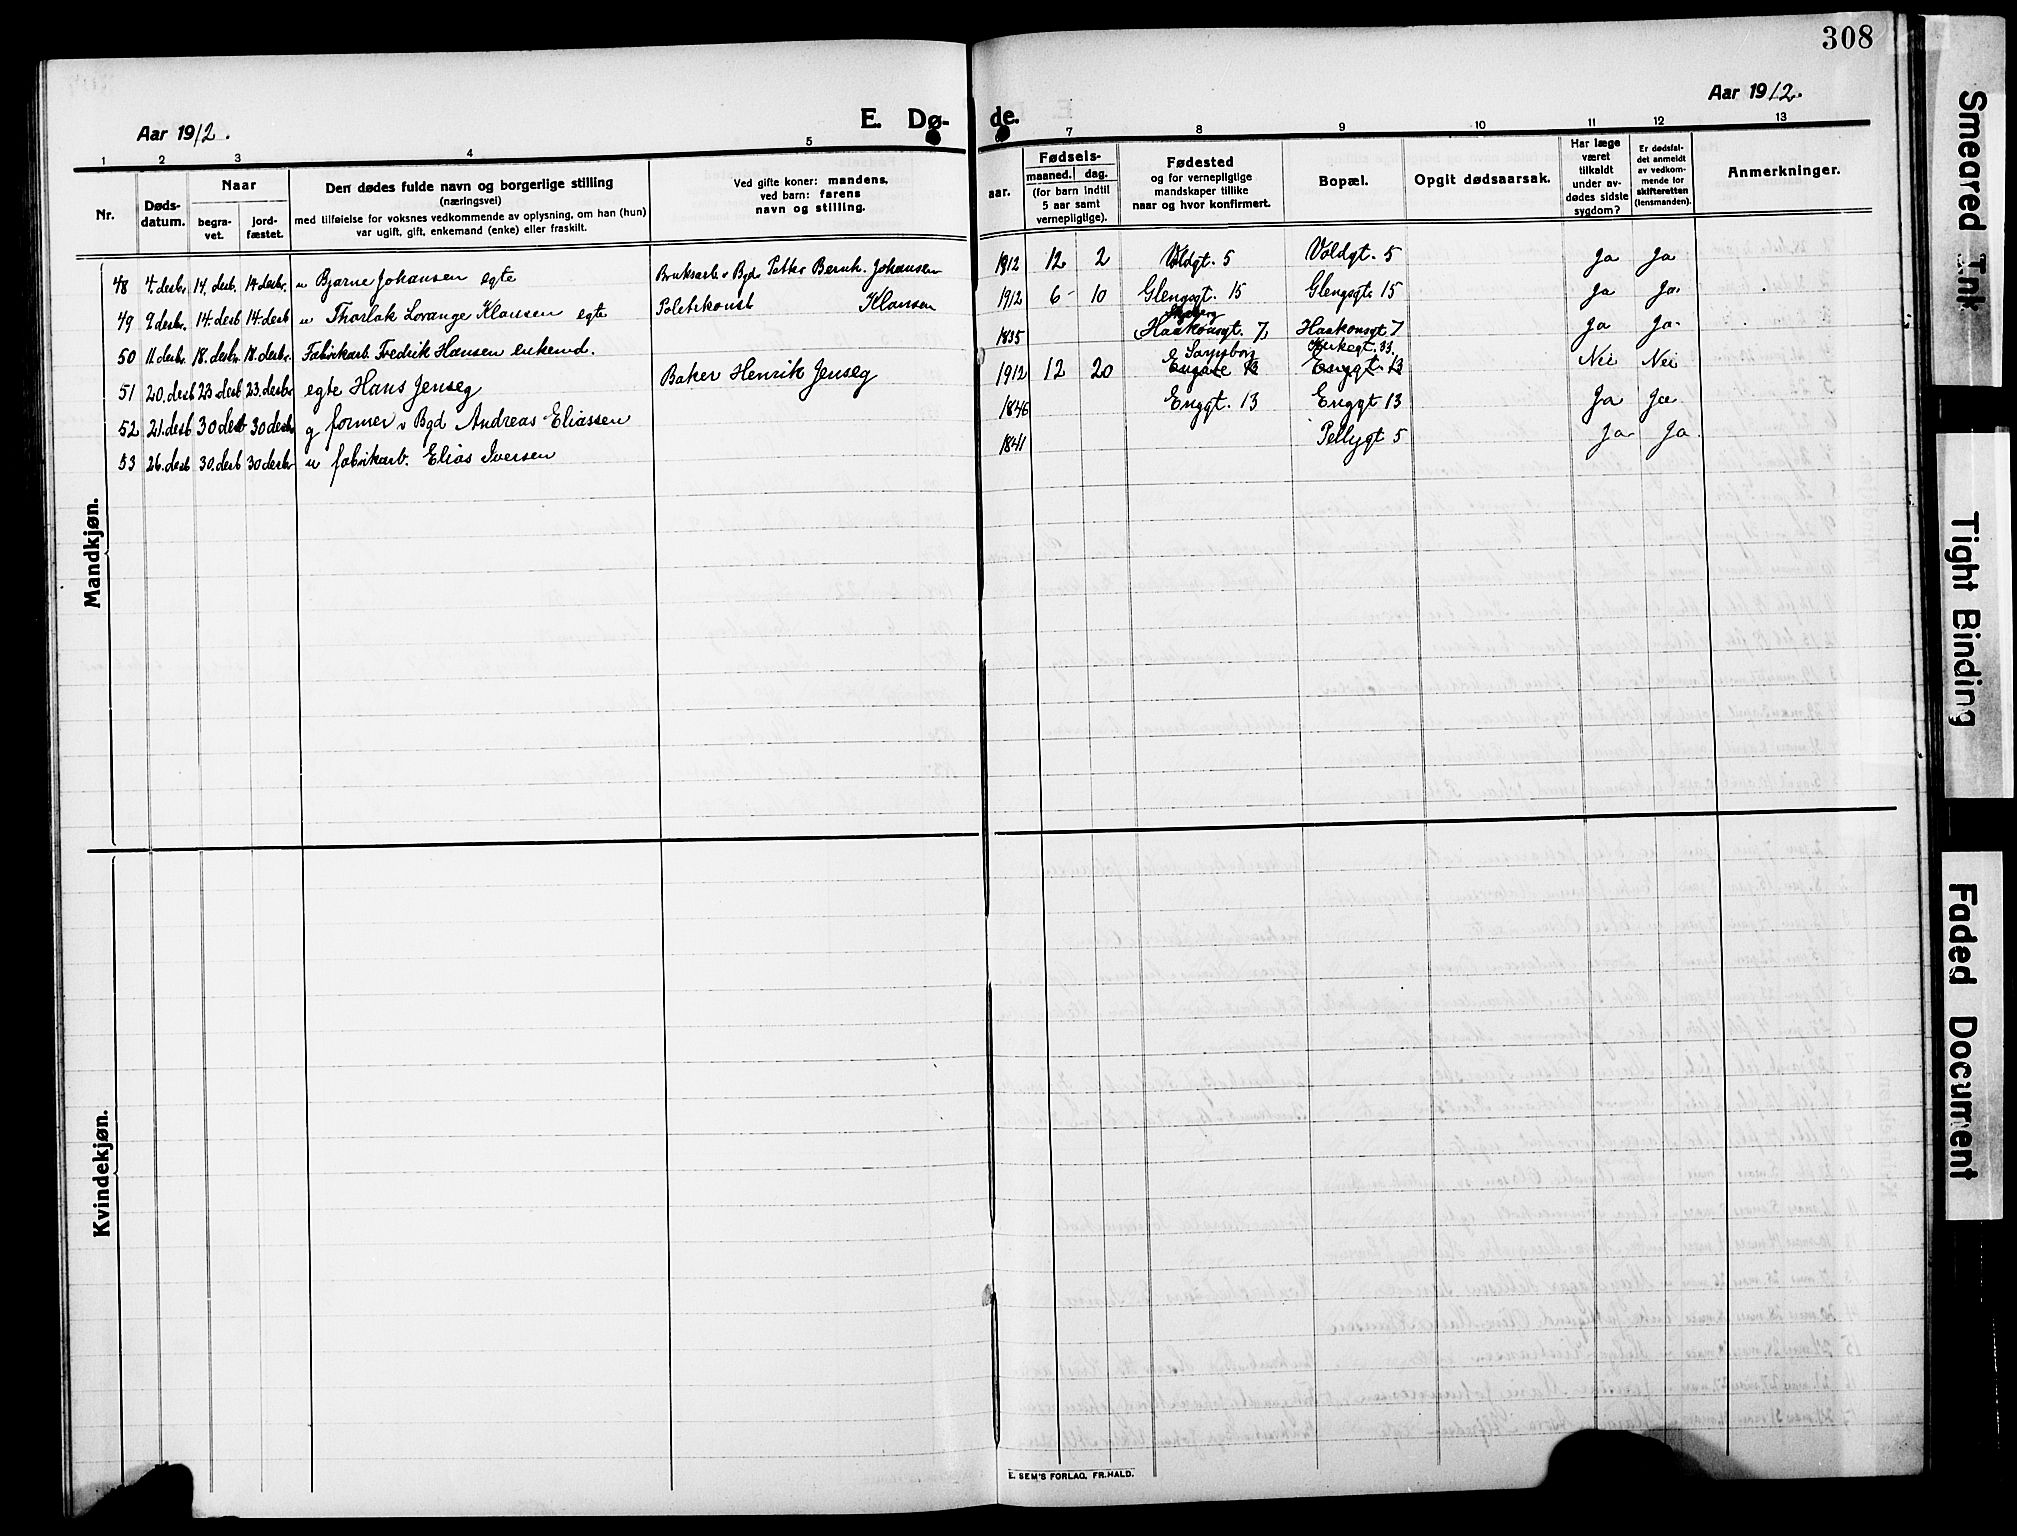 308
Aar 1912.
E. Dø-
de.
Aar 1912.
1 2 3 4 5 7 8 9 10 11 12 13
Nr.
Døds-
datum.
Naar
begra-
vet.
jord-
fæstet.
Den dødes fulde navn og borgerlige stilling
(næringsvei)
med tilføielse for voksnes vedkommende av oplysning, om han (hun)
var ugift, gift, enkemand (enke) eller fraskilt.
Ved gifte koner: mandens,
ved barn: farens
navn og stilling.
Fødsels-
aar.
maaned. dag.
(for barn indtil
5 aar samt
vernepligtige).
Fødested
og for vernepligtige
mandskaper tillike
naar og hvor konfirmert.
Bopæl.
Opgit dødsaarsak.
Har læge
været
tilkaldt
under av-
dødes sidste
sygdom?
Er dødsfal-
det anmeldt
av vedkom-
mende for
skifteretten
(lensmanden).
Anmerkninger.
Mandkjøn.
48 4. desbr 14. desb. 14 desbr. u Bjarne Johansen egte Bruksarb. v Bgd Petter Bernh. Johansen 1912 12 2 Voldgt. 5 Voldgt. 5 Ja Ja
49 9 desbr. 14. desb 14. desb u Thorlak Lorange Klausen egte Politikonst Klausen 1912 6 10 Glengsgt. 15 Glengsgt. 15 Ja Ja.
50 11. desbr. 18. desbr 18. desbr. Fabrikarb. Fredrik Hansen enkemd. 1835 Skjeberg Haakonsgt. 7, Haakonsgt 7 Ja Ja.
51 20. desb 23. desb 23. desbr egte Hans Jenseg Baker Henrik Jenseg 1912 12 20 Sarpsborg Enggate 13 Kirkegt. 33. Enggt. 13 Nei Nei
52 21. desb 30 desb 30 desbr g former v Bgd Andreas Eliassen 1846 Enggt. 13 Enggt 13 Ja Ja.
53 26. desb 30. desb 30 desbr u fabrikarb. Elias Iversen 1841 Pellygt 5 Ja. Ja.
Kvindekjøn.
E. SEM'S FORLAG, FR.HALD.
Smeared Ink
Tight Binding
Faded Document